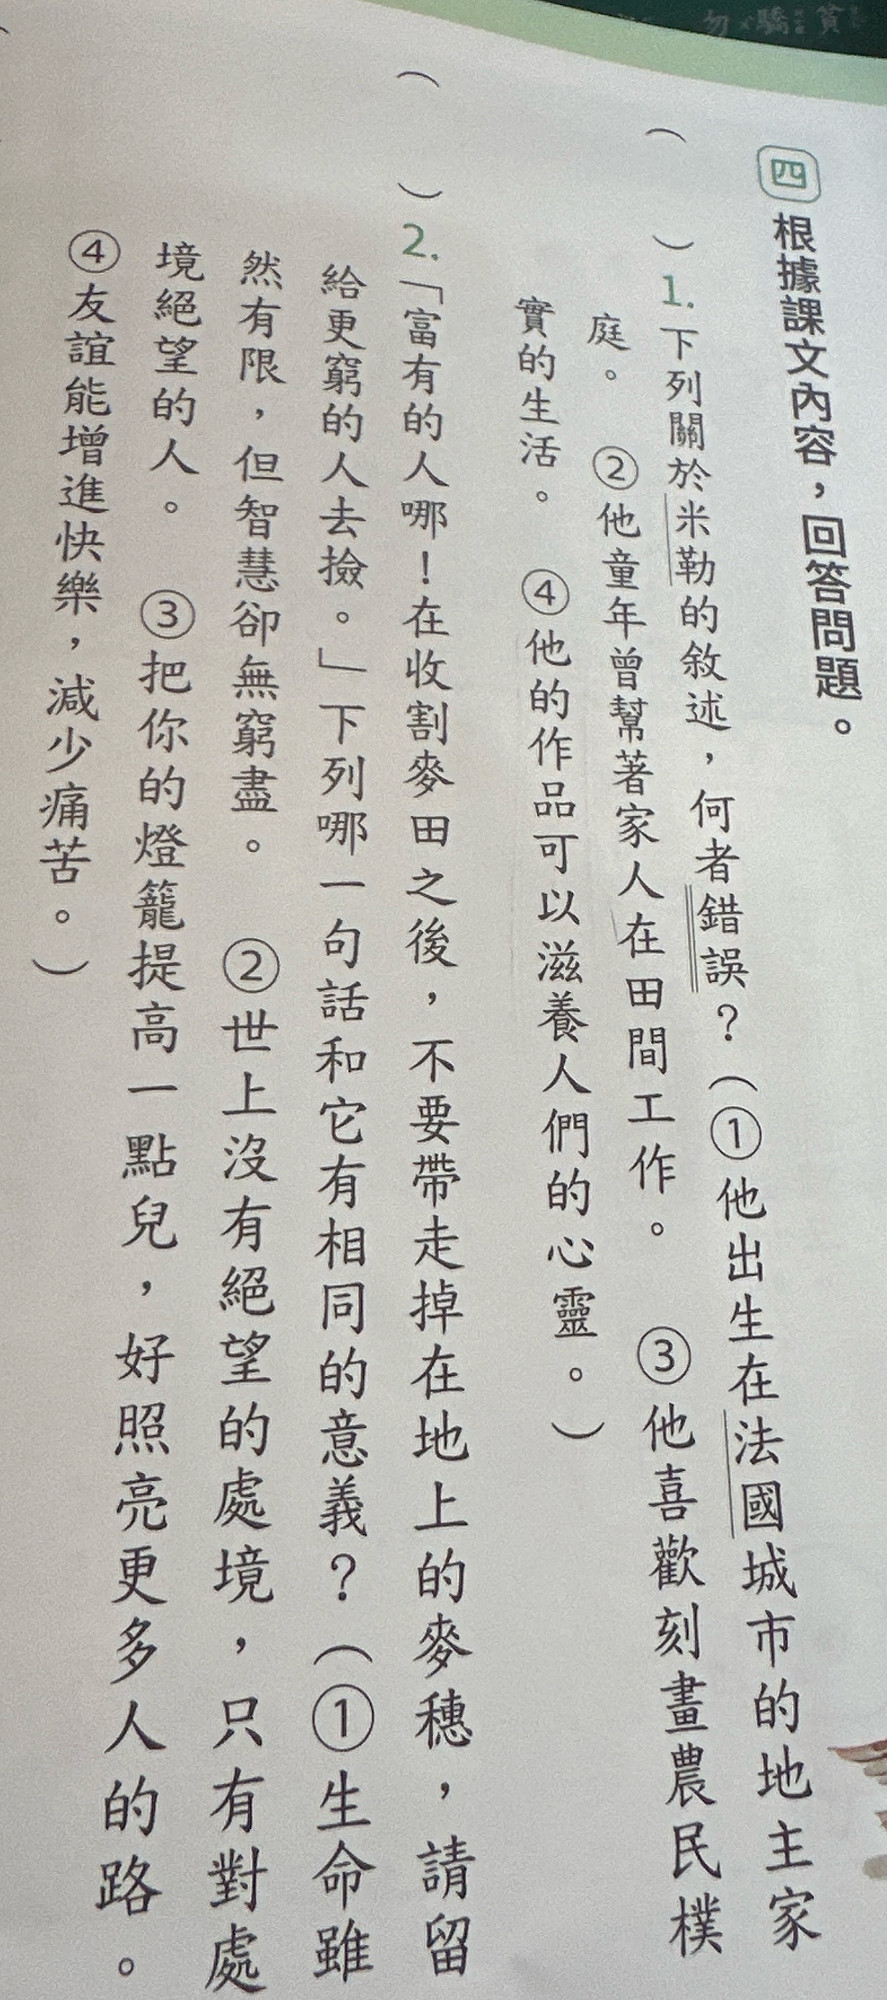 勿驕貧
四 根據課文內容，回答問題。
（　）1.下列關於米勒的敘述，何者錯誤？（①他出生在法國城市的地主家
庭。　②他童年曾幫著家人在田間工作。　③他喜歡刻畫農民樸
實的生活。　④他的作品可以滋養人們的心靈。）
（　）2.「富有的人哪！在收割麥田之後，不要帶走掉在地上的麥穗，請留
給更窮的人去撿。」下列哪一句話和它有相同的意義？（①生命雖
然有限，但智慧卻無窮盡。　②世上沒有絕望的處境，只有對處
境絕望的人。　③把你的燈籠提高一點兒，好照亮更多人的路。
④友誼能增進快樂，減少痛苦。）